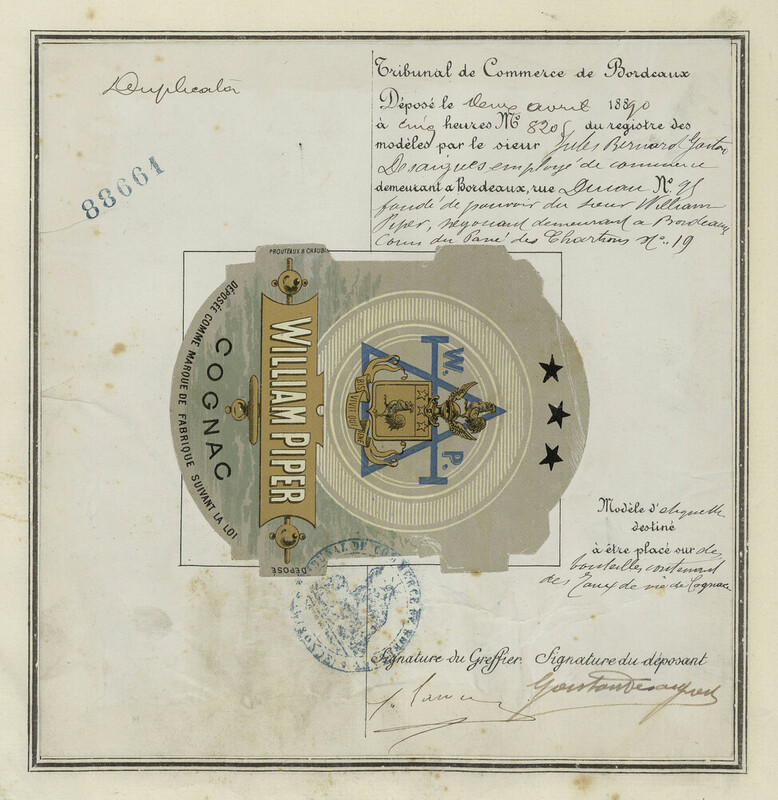 Duplicata
88661
Tribunal de Commerce de Bordeaux
Déposé le deux avril 1890
à cinq heures No 820 du registre des
modèles par le sieur Jules Bernard Gaston
Desaigues employé de commerce
demeurant à Bordeaux, rue No 95
fondé de pouvoir du sieur William
Piper, négociant demeurant à Bordeaux
Cours du Pavé des Chartrons No. 19
PROUTEAUX & CHAUBIN
DÉPOSÉE COMME MARQUE DE FABRIQUE SUIVANT LA LOI
COGNAC
WILLIAM PIPER
DEPOSÉ
BIS VIVIT QUI BENE
W. P.
Modèle d'étiquette
destiné
à être placé sur des
bouteilles contenant
des Eaux de vie de Cognac
TRIBUNAL DE COMMERCE DE
Signature du Greffier. Signature du déposant
Gaston Desaigues